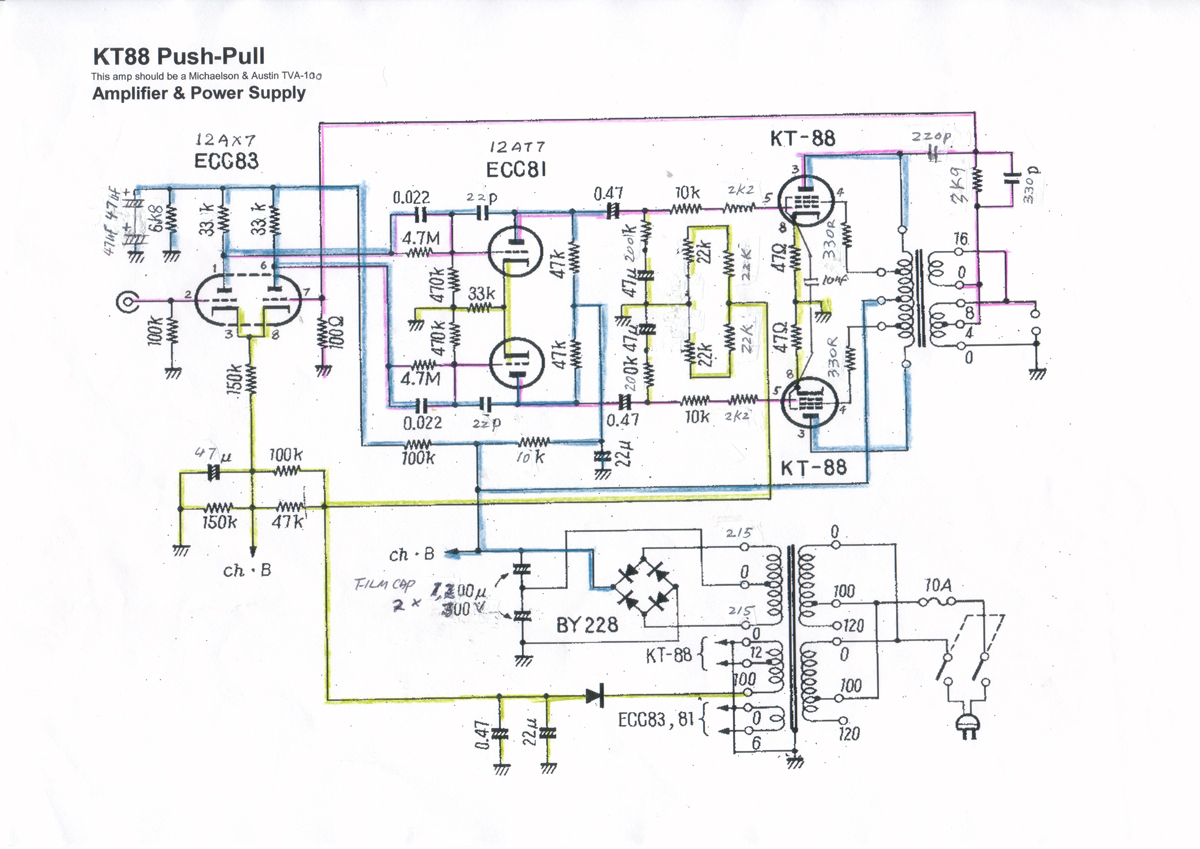 KT88 Push-Pull
This amp should be a Michaelson & Austin TVA-100
Amplifier & Power Supply
12AX7
ECC83
12AT7
ECC81
KT-88
220p
3K9
330p
47µF 47µF
6K8
33k
33k
0.022
22p
0.47
10k
2k2
3
4
5
8
330R
4.7M
470k
33k
470k
4.7M
47k
47k
200k
47µ
47µ
200k
22k
22k
22k
22k
47Ω
47Ω
10nF
330R
16
0
8
4
0
1
6
2
7
3
8
100k
100Ω
150k
0.022
22p
0.47
10k
2k2
5
8
4
3
KT-88
100k
10k
22µ
47µ
100k
150k
47k
ch·B
ch·B
FILM CAP
2 ×
300V
BY228
215
0
215
0
12
100
0
6
KT-88
ECC83, 81
0
100
120
0
100
120
10A
0.47
22µ